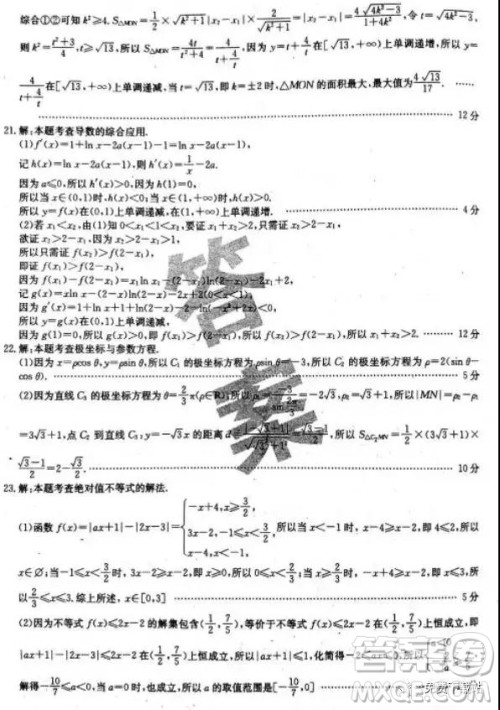 综合①②可知k²≥4. S△MON=1/2×√(k²+1)|x₂-x₁|×2/√(k²+1)=|x₂-x₁|=4√(4k²-3)/(1+4k²). 令t=√(4k²-3),
则k²=(t²+3)/4, t≥√13, 所以S△MON=4t/(t²+4)=4/(t+4/t). 因为y=t+4/t在[√13,+∞)上单调递增,所以y=
4/(t+4/t)在[√13,+∞)上单调递减,当t=√13,即k=±2时,△MON的面积最大,最大值为4√13/17.
12分
21.解:本题考查导数的综合应用.
(1)f′(x)=1+ln x-2a(x-1)-1=ln x-2a(x-1).
记h(x)=ln x-2a(x-1),所以h′(x)=1/x-2a.
因为a≤0,所以h′(x)>0,因为h(1)=0,
所以当x∈(0,1)时,h(x)<0,当x∈(1,+∞)时,h(x)>0.
所以y=f(x)在(0,1)上单调递减,在(1,+∞)上单调递增. 4分
(2)若x₁<x₂,由(1)知0<x₁<1<x₂,要证x₁+x₂>2,只需证x₂>2-x₁.
欲证x₂>2-x₁,因为x₂>1,2-x₁>1,
所以只需证f(x₂)>f(2-x₁),
即证f(x₁)>f(2-x₁).
因为f(x₁)-f(2-x₁)=x₁ln x₁-(2-x₁)ln(2-x₁)-2x₁+2,
记g(x)=xln x-(2-x)ln(2-x)-2x+2(0<x<1).
因为g′(x)=1+ln x+1+ln(2-x)-2=ln(-x²+2x)<0,
所以y=g(x)在(0,1)上单调递减.
所以g(x)>g(1)=0,即f(x₁)>f(2-x₁),所以f(x₂)>f(2-x₁),所以x₁+x₂>2. 12分
22.解:本题考查极坐标与参数方程.
(1)因为x=ρcos θ, y=ρsin θ,所以C₁的极坐标方程为ρsin θ=-3,所以C₂的极坐标方程为ρ=2(sin θ-
cos θ). 5分
(2)因为直线C₃的极坐标方程为θ=2/3π(ρ∈R),所以
,所以|MN|=ρ₂-ρ₁
=3√3+1,点C₂到直线C₃:y=-√3x的距离
,所以S△C₂MN=1/2×(3√3+1)×
(√3-1)/2=2-√3/2. 10分
23.解:本题考查绝对值不等式的解法.
(1)函数f(x)=|ax+1|-|2x-3|={-x+4,x≥3/2, 3x-2,-1≤x<3/2, x-4,x<-1, 所以当x<-1时,x-4≥3x-2,即4≤2,所以
x∈∅;当-1≤x<3/2
5分
x∈[0,3]
(2)因为不等式f(x)≤2x-2的解集包含(1/2,7/5),等价于不等式f(x)≤2x-2在(1/2,7/5)上恒成立,即
|ax+1|-|2x-3|≤2x-2在(1/2,7/5)上恒成立,所以|ax+1|≤1,化简得-2≤ax≤0,
解得-10/7≤a<0,当a=0时,也成立,所以a的取值范围是[-10/7,0]
答案
答案圈